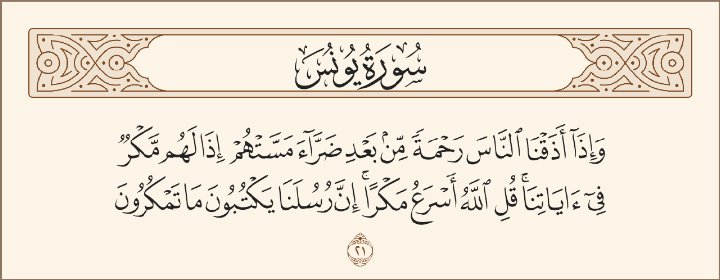 سُورَةُ يُونُسَ
وَإِذَآ أَذَقۡنَا ٱلنَّاسَ رَحۡمَةٗ مِّنۢ بَعۡدِ ضَرَّآءَ مَسَّتۡهُمۡ إِذَا لَهُم مَّكۡرٞ
فِيٓ ءَايَاتِنَاۚ قُلِ ٱللَّهُ أَسۡرَعُ مَكۡرًاۚ إِنَّ رُسُلَنَا يَكۡتُبُونَ مَا تَمۡكُرُونَ
٢١